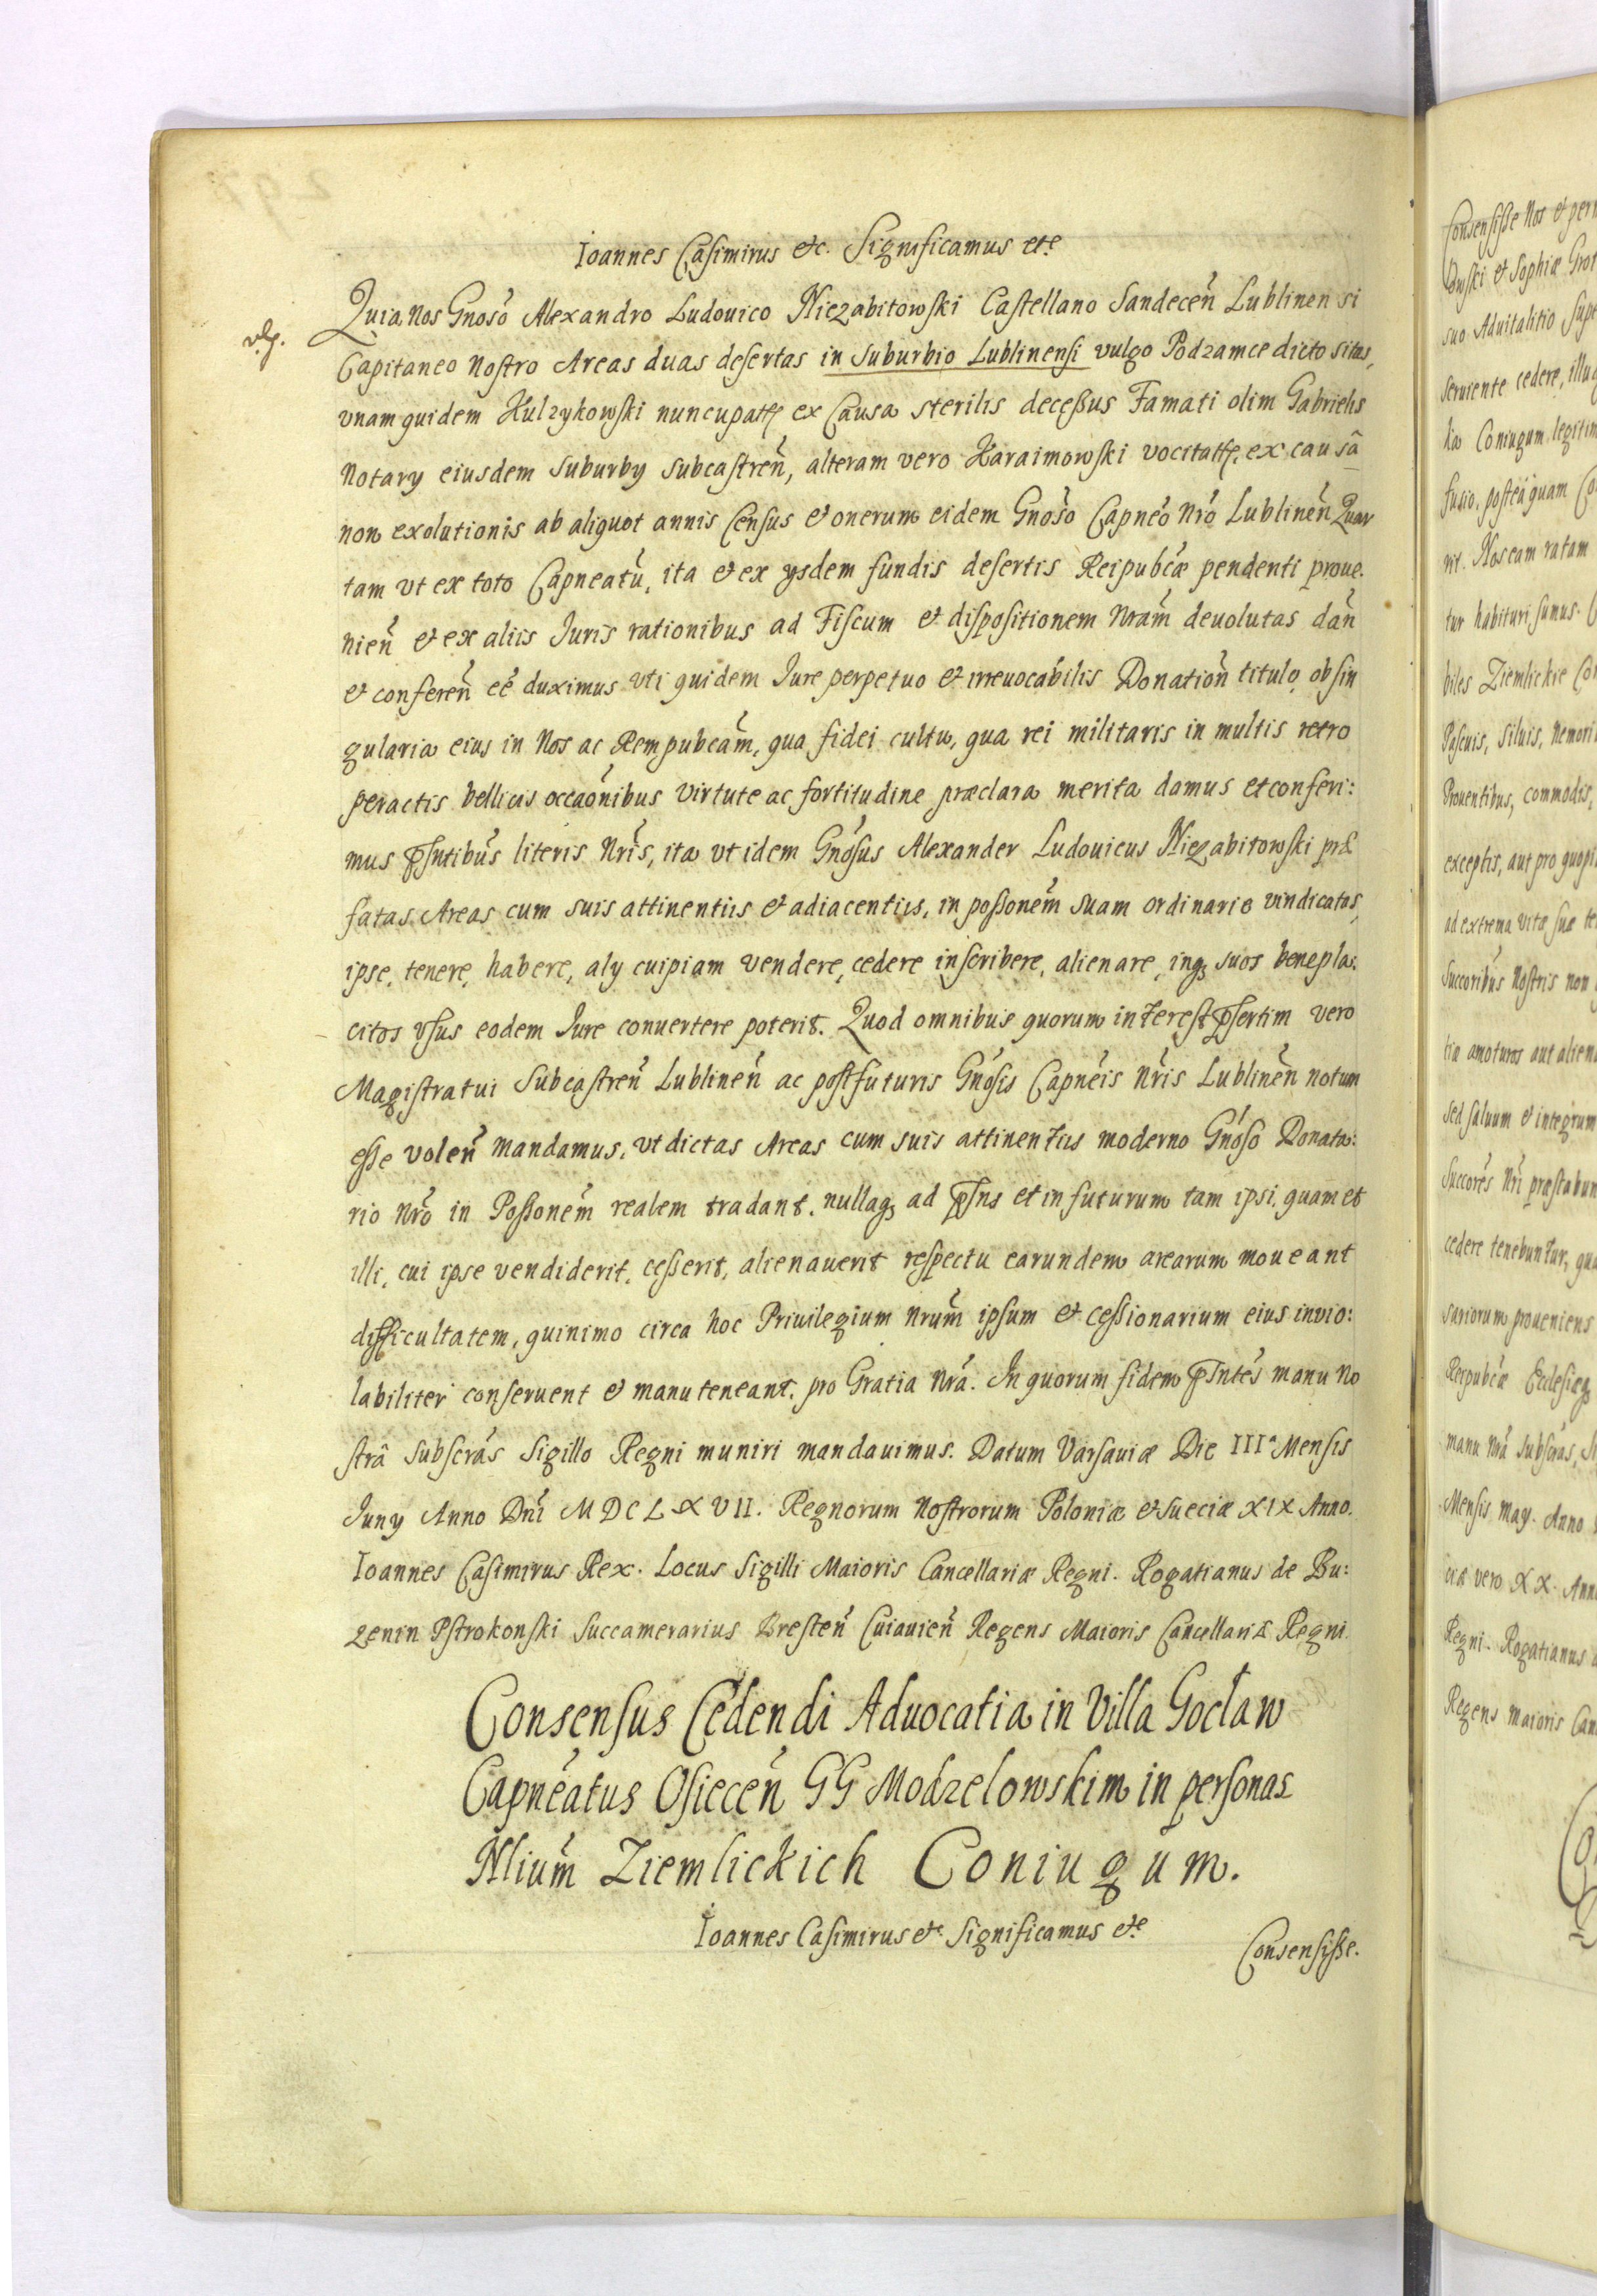 Ioannes Casimirus etc. Significamus etc
Quia nos Gnoso Alexandro Ludouico Niezabitowski Castellano Sandecen Lublinensi
Capitaneo Nostro Areas duas desertas in Suburbio Lublinensi vulgo Podzamce dicto sitas,
vnam quidem Kulzykowski nuncupatt ex Causa sterilis deceßus Famati olim Gabrielis
Notary eiusdem suburby subcastren, alteram vero Karaimowski vocitatt, ex causâ
non exolutionis ab aliquot annis Census et onerum eidem Gnoso Capneo Nro Lublinen Quar
tam vt ex toto Capneatu, ita et ex ysdem fundis desertis Reipubcæ pendenti proue.
nien et ex aliis Iuris rationibus ad Fiscum et dispositionem Nram deuolutas dan
et conferen eé duximus vti quidem Iure perpetuo et irreuocabilis Donation titulo, ob sin
gularia eius in Nos ac Rempubcam, qua fidei cultu, qua rei militaris in multis retro
peractis bellicis occaonibus virtute ac fortitudine præclara merita damus et conferi:
mus pſntibus literis Nris, ita vt idem Gnosus Alexander Ludouicus Niezabitowski præ
fatas Areas cum suis attinentiis et adiacentiis, in poßonem suam ordinarie vindicatas,
ipse, tenere, habere, aly cuipiam vendere, cedere inscribere, alienare, inq3 suos benepla:
citos vsus eodem Iure conuertere poterit. Quod omnibus quorum interest pſertim vero
Magistratui Subcastren Lublinen ac postfuturis Gnosis Capneis Nris Lublinen notum
esse volen mandamus, vt dictas Areas cum suis attinentiis moderno Gnoso Donata:
rio Nro in Poßonem realem tradant, nullaq3 ad pſns et in futurum tam ipsi, quam et
illi, cui ipse vendiderit, ceßerit, alienauerit respectu earundem arearum moueant
difficultatem, quinimo circa hoc Priuilegium Nrum ipsum et ceßionarium eius inuio:
labiliter conseruent et manuteneant, pro Gratia Nra. In quorum fidem pſntes manu No
strâ subscras Sigillo Regni muniri mandauimus. Datum Varsauiæ Die IIIa Mensis
Iuny Anno Dni MDCLXVII. Regnorum Nostrorum Poloniæ et Sueciæ XIX Anno.
Ioannes Casimirus Rex. Locus Sigilli Maioris Cancellariæ Regni. Rogatianus de Bu:
zenin Pstrokonski Succamerarius Bresten Cuiauien Regens Maioris Cancellariæ Regni
Consensus Cedendi Aduocatia in Villa Goclaw
Capneatus Osiecen GG Modzelowskim in personas
Nlium Ziemlickich Coniugum.
Ioannes Casimirus etc Significamus etc
Consensiße.
Consensiße Nos et per
suo Aduitalitio
seruiente cedere,
Coniugum
fusio, posteaquam
rit. Nos eam ratam
tur habituri sumus.
biles Ziemlickie
Pascuis, Siluis,
Prouentibus, commodis,
exceptis, aut pro
ad extrema vitæ suæ
Succoribus Nostris non
amoturos aut
sed saluum et integrum
Succores Nri
cedere tenebuntur,
sariorum proueniens
Reipubcæ
manu Nra subscras,
Mensis May. Anno
vero XX. Ann
Regni. Rogatianus
Regens Maioris Can